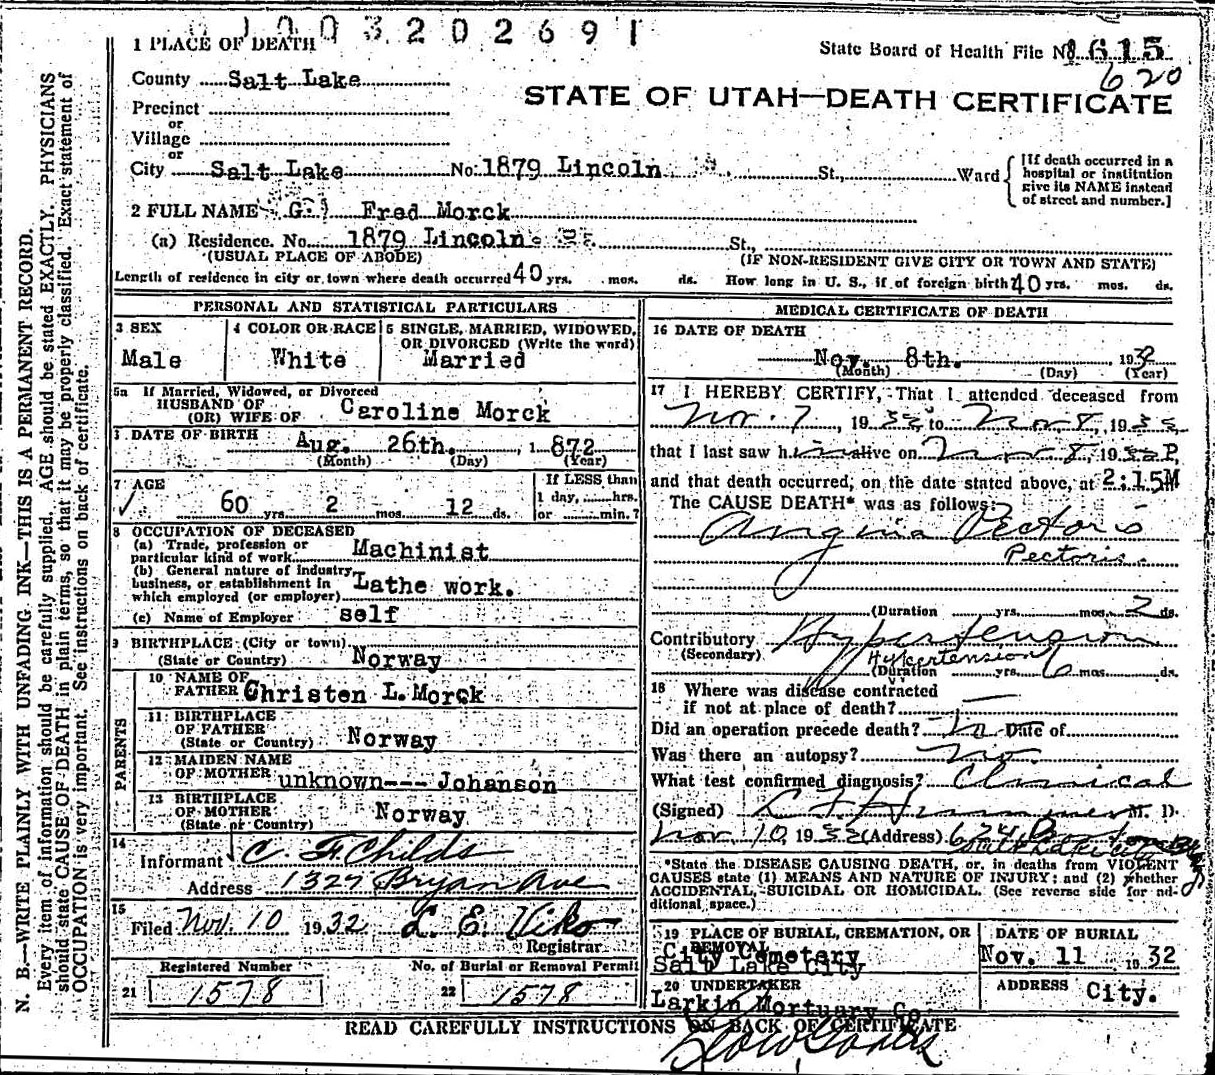 1003202691
1 PLACE OF DEATH
State Board of Health File No. 1615
620
County Salt Lake
STATE OF UTAH—DEATH CERTIFICATE
Precinct
or
Village
or
City Salt Lake No. 1879 Lincoln St., Ward
[If death occurred in a hospital or institution give its NAME instead of street and number.]
2 FULL NAME G. Fred Morck
(a) Residence. No. 1879 Lincoln St.,
(USUAL PLACE OF ABODE) (IF NON-RESIDENT GIVE CITY OR TOWN AND STATE)
Length of residence in city or town where death occurred 40 yrs. mos. ds. How long in U. S., if of foreign birth 40 yrs. mos. ds.
PERSONAL AND STATISTICAL PARTICULARS
3 SEX
Male
4 COLOR OR RACE
White
5 SINGLE, MARRIED, WIDOWED,
OR DIVORCED (Write the word)
Married
5a If Married, Widowed, or Divorced
HUSBAND OF
(OR) WIFE OF Caroline Morck
DATE OF BIRTH Aug. 26th. , 1872
(Month) (Day) (Year)
7 AGE
60 yrs. 2 mos. 12 ds.
If LESS than
1 day, hrs.
or min.?
8 OCCUPATION OF DECEASED
(a) Trade, profession or
particular kind of work Machinist
(b) General nature of industry,
business, or establishment in
which employed (or employer) Lathe work.
(c) Name of Employer self
9 BIRTHPLACE (City or town)
(State or Country) Norway
PARENTS
10 NAME OF
FATHER Christen L. Morck
11 BIRTHPLACE
OF FATHER
(State or Country) Norway
12 MAIDEN NAME
OF MOTHER unknown--- Johanson
13 BIRTHPLACE
OF MOTHER
(State or Country) Norway
14
Informant C. F. Childs
Address 1327 Bryan Ave
15
Filed Nov. 10 1932 L. E. Viko
Registrar
Registered Number
21 1578
No. of Burial or Removal Permit
22 1578
MEDICAL CERTIFICATE OF DEATH
16 DATE OF DEATH
Nov. 8th. 1932
(Month) (Day) (Year)
17 I HEREBY CERTIFY, That I attended deceased from
Nov. 7, 1932 to Nov 8, 1932
that I last saw him alive on Nov 8, 1932 P
and that death occurred, on the date stated above, at 2:15M
The CAUSE DEATH* was as follows:
Angina Pectoris
Pectoris.
(Duration yrs. mos. 2 ds.
Contributory Hypertension
(Secondary) Hypertension
(Duration yrs. 6 mos. ds.
18 Where was disease contracted
if not at place of death?
Did an operation precede death? no Date of
Was there an autopsy? no.
What test confirmed diagnosis? Clinical
(Signed) M. D.
Nov 10, 1932 (Address)
*State the DISEASE CAUSING DEATH, or, in deaths from VIOLENT
CAUSES state (1) MEANS AND NATURE OF INJURY; and (2) whether
ACCIDENTAL, SUICIDAL OR HOMICIDAL. (See reverse side for ad-
ditional space.)
19 PLACE OF BURIAL, CREMATION, OR
REMOVAL
City Cemetery
Salt Lake City
DATE OF BURIAL
Nov. 11 1932
20 UNDERTAKER
Larkin Mortuary Co.
ADDRESS City.
READ CAREFULLY INSTRUCTIONS ON BACK OF CERTIFICATE
N. B.—WRITE PLAINLY WITH UNFADING INK—THIS IS A PERMANENT RECORD.
Every item of information should be carefully supplied. AGE should be stated EXACTLY. PHYSICIANS
should state CAUSE OF DEATH in plain terms, so that it may be properly classified. Exact statement of
OCCUPATION is very important. See instructions on back of certificate.